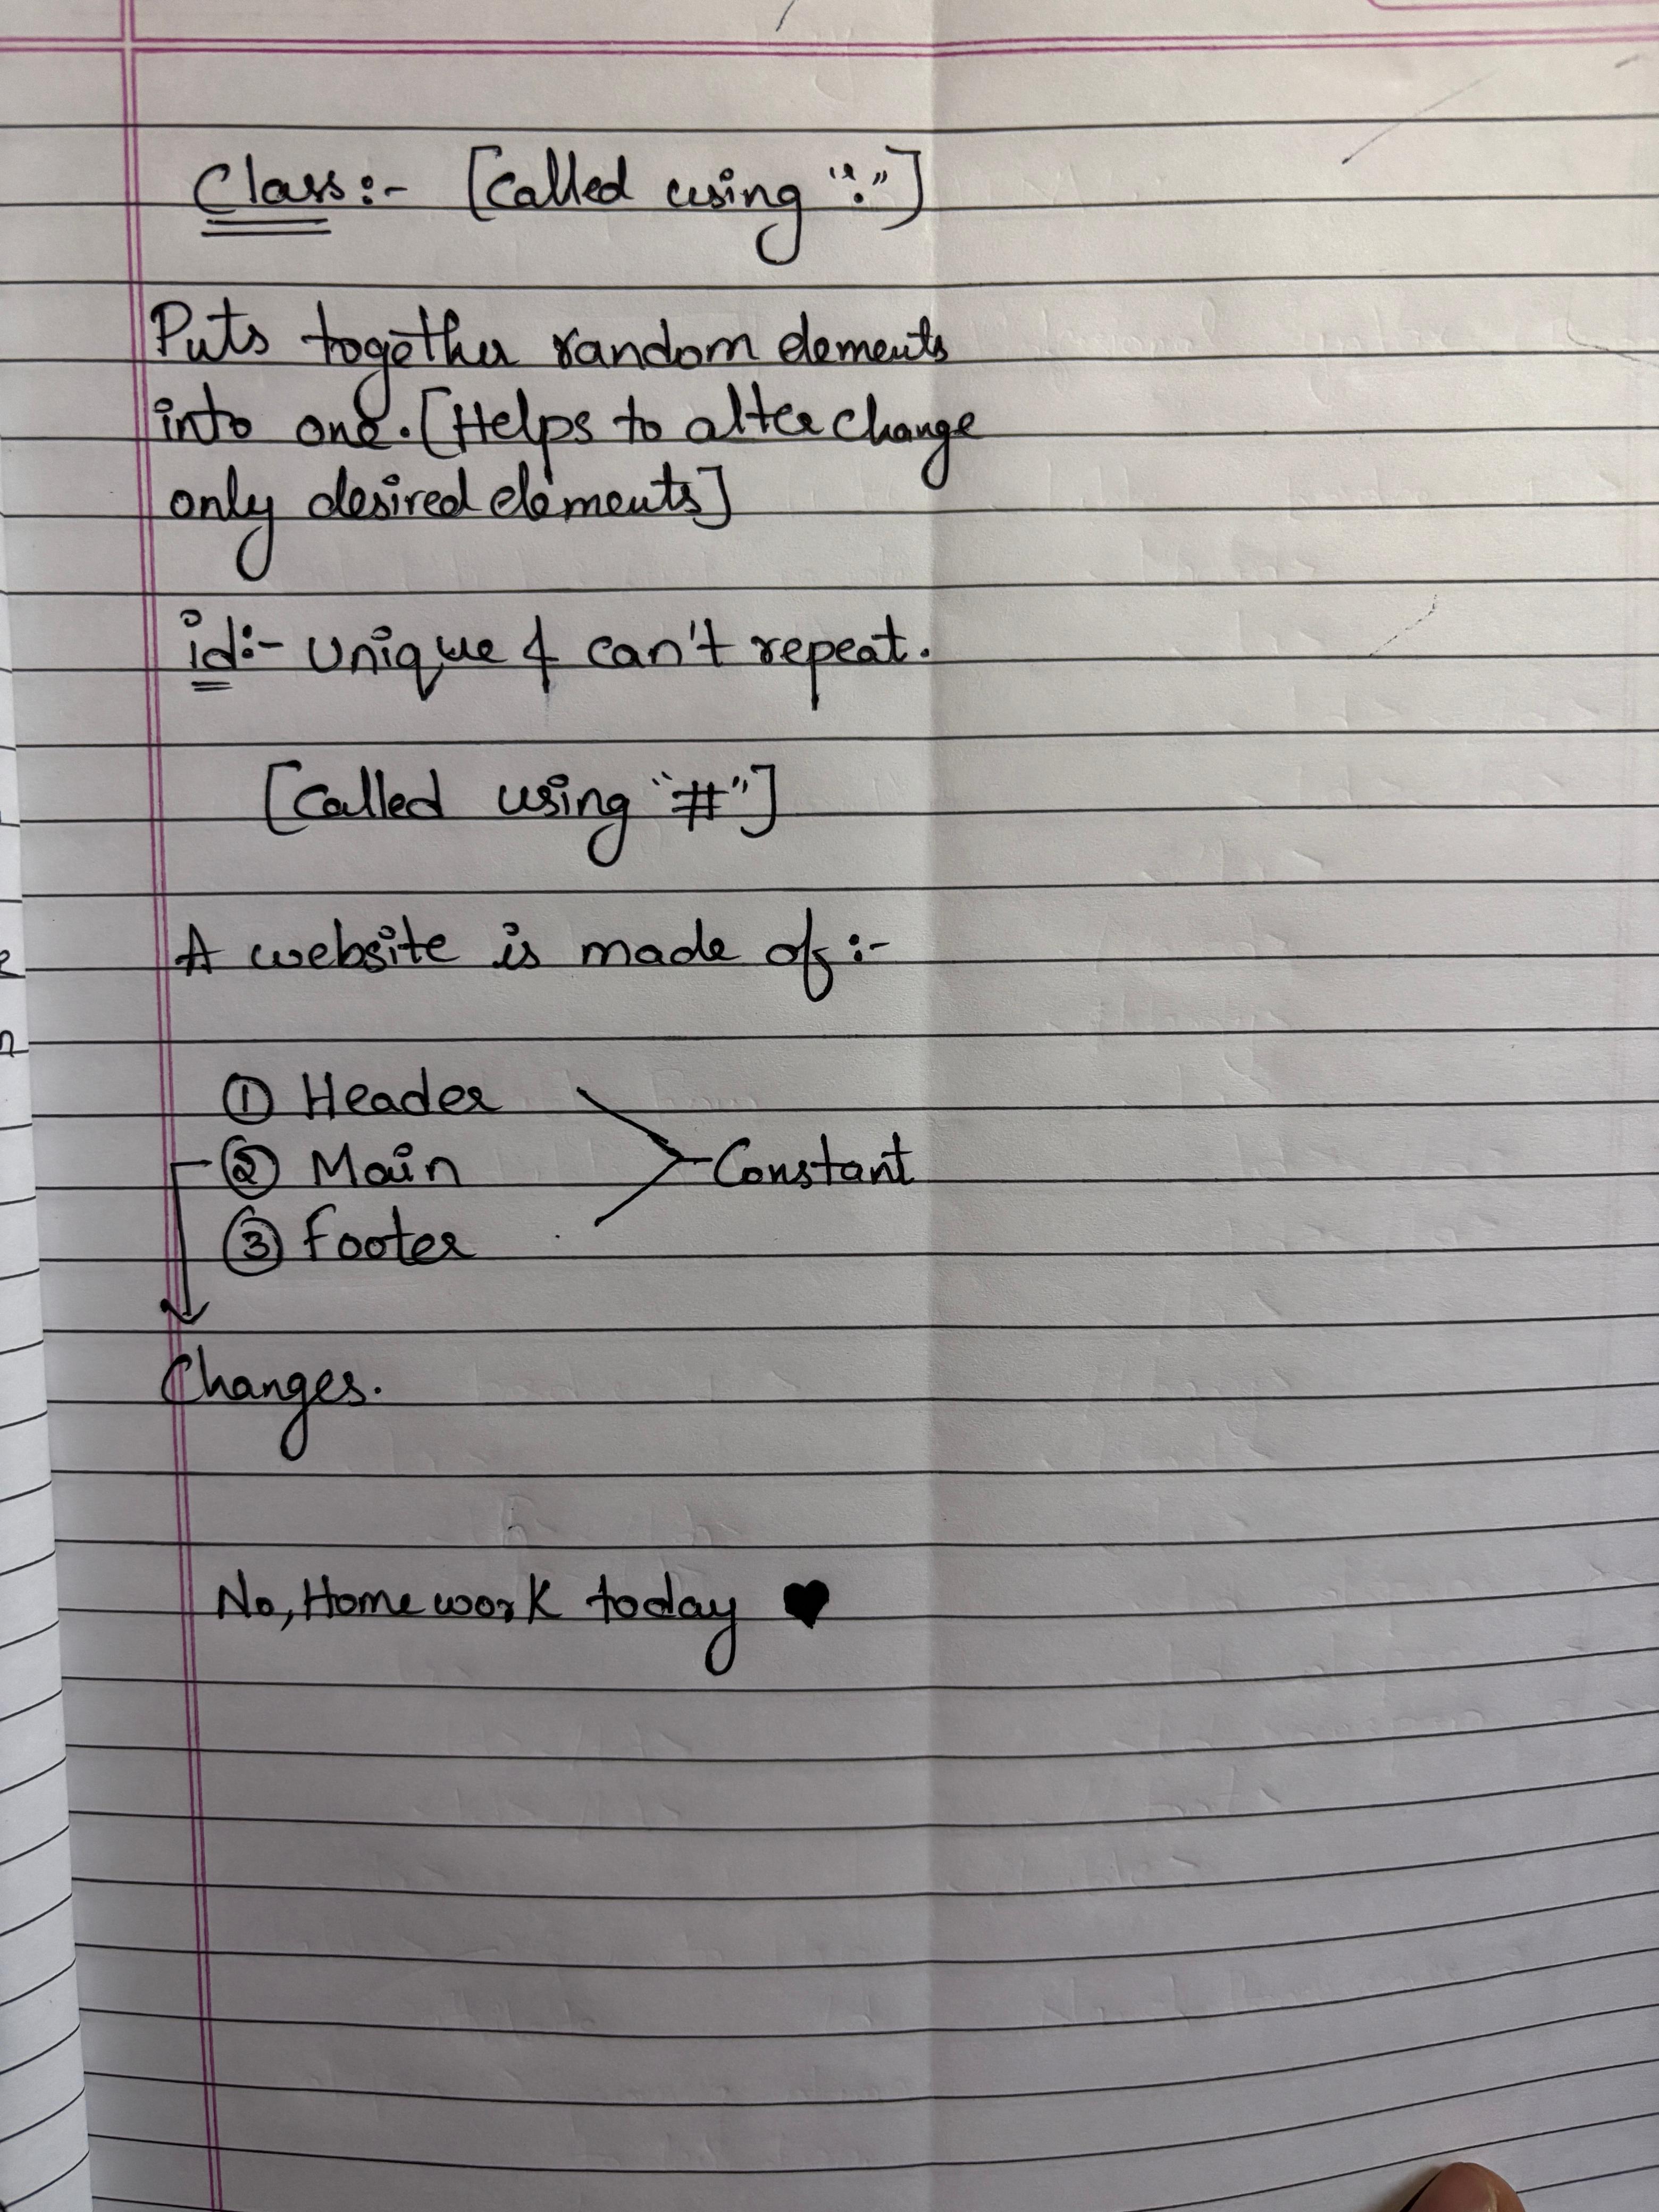 Class:- [Called using "."]
Puts together random elements
into one. [Helps to alter change
only desired elements]
id:- Unique & can't repeat.
[Called using "#"]
A website is made of:-
① Header
② Main Constant
③ Footer
Changes.
No, Homework today ♥